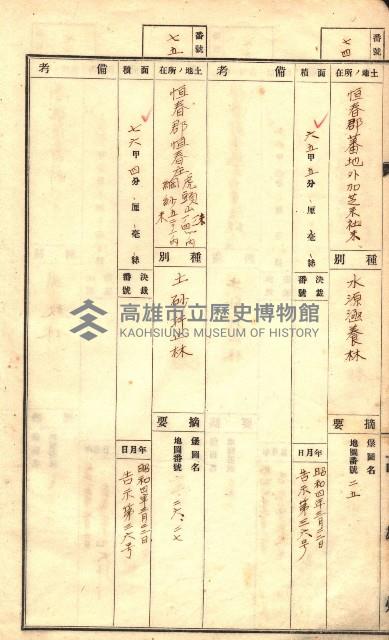 番號
七四
土地ノ所在
恒春郡蕃地外加芝來社
種別
水源涵養林
摘要
堡圖名
地圖番號
二五
面積
六五甲五分、厘、毫、絲
決裁番號
年月日
昭和四年三月三一日
告示第三六號
備考
番號
七五
土地ノ所在
恒春郡恒春庄
虎頭山
網紗
種別
土砂扞止林
摘要
堡圖名
地圖番號
二六、二七
面積
七六甲四分、厘、毫、絲
決裁番號
年月日
告示第三六號
備考
高雄市立歷史博物館
KAOHSIUNG MUSEUM OF HISTORY